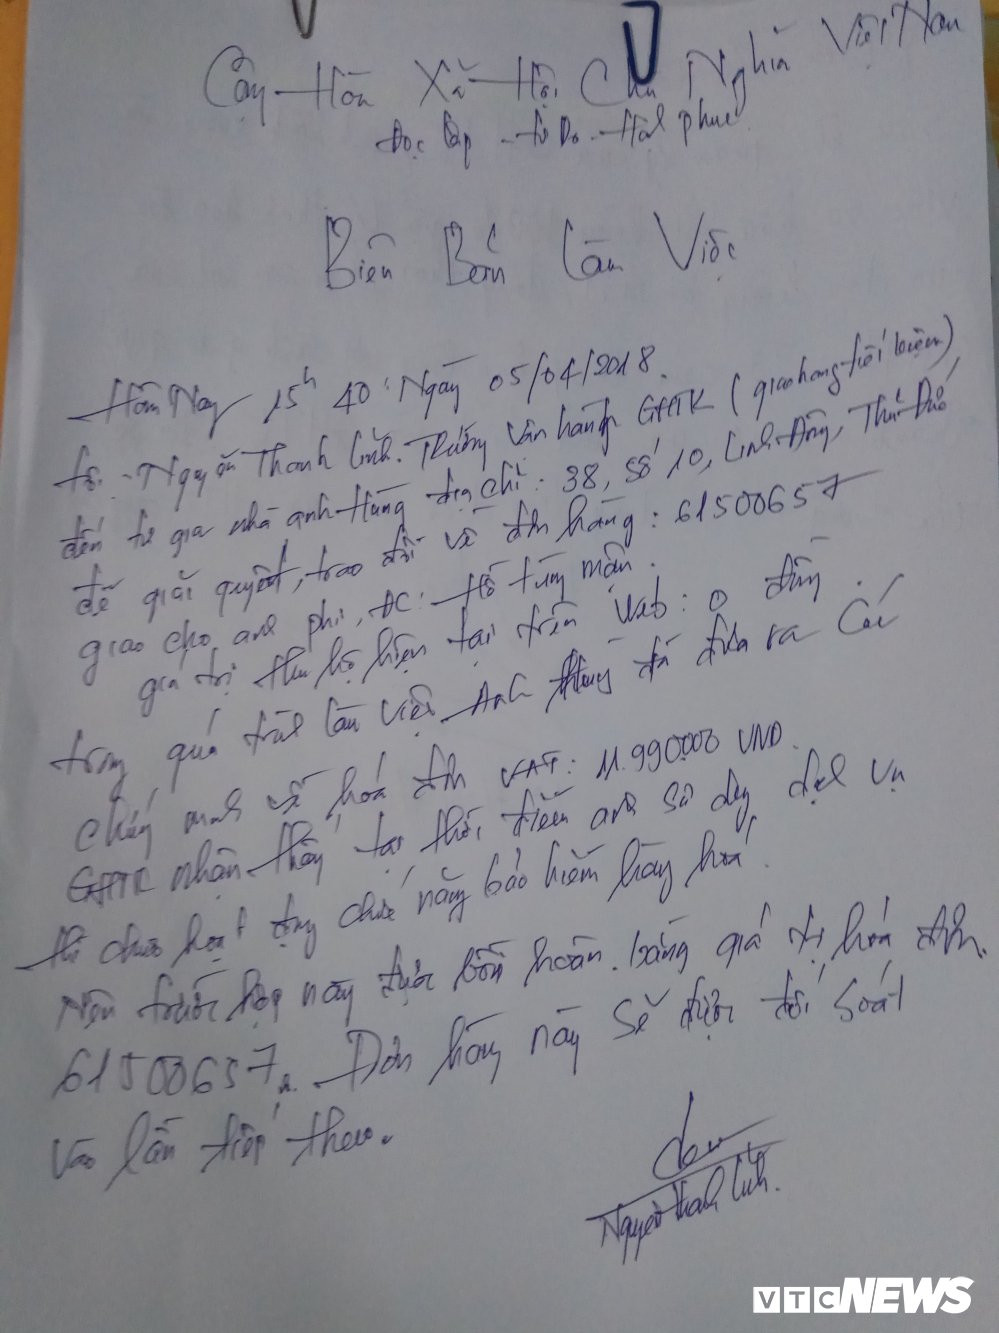 Cộng Hòa Xã Hội Chủ Nghĩa Việt Nam
Độc lập - Tự Do - Hạnh phúc
Biên Bản Làm Việc
Hôm Nay 15h 40' Ngày 05/04/2018.
tôi: Nguyễn Thanh Linh. Trưởng Vận hành GHTK (giao hàng tiết kiệm),
đến tư gia nhà anh Hùng địa chỉ: 38, Số 10, Linh Đông, Thủ Đức
để giải quyết, trao đổi về đơn hàng: 61500657
giao cho anh phi, ĐC: Hồ tùng mậu.
giá trị thu hộ hiện tại trên Web: 0 đồng.
trong quá trình làm việc. Anh Hùng đã đưa ra Các
chứng minh về hoá đơn VAT: 11.990.000 VND.
GHTK nhận thấy tại thời điểm anh sử dụng dịch vụ
thì chưa hoạt động chức năng bảo hiểm hàng hoá.
Nên trường hợp này được bồi hoàn bằng giá trị hóa đơn.
61500657. Đơn hàng này sẽ được đối soát
vào lần tiếp theo.
Nguyễn Thanh Linh.
VTC NEWS